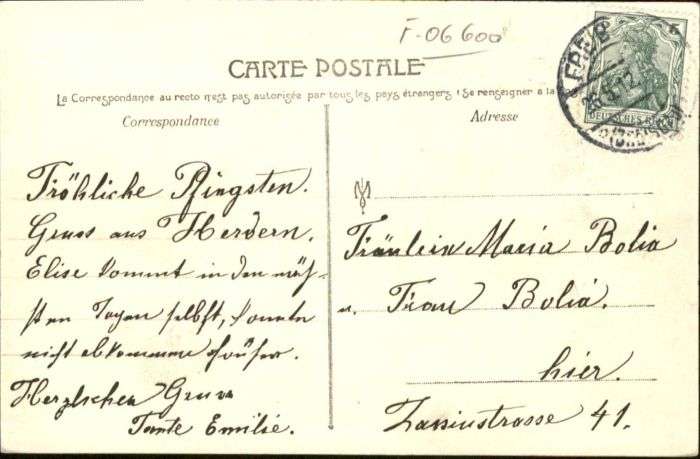 F-06600
CARTE POSTALE
La Correspondance au recto n'est pas autorisée par tous les pays étrangers (Se renseigner à la
Correspondance
Adresse
DEUTSCHES REICH
Fröhliche Pfingsten.
Gruss aus Herdern.
Elise kommt in den näch-
sten Tagen selbst, konnte
nicht abkommen früher.
Herzlichen Gruss
Tante Emilie.
M
Fräulein Maria Bolia
u. Frau Bolia.
hier.
Zasiusstrasse 41.